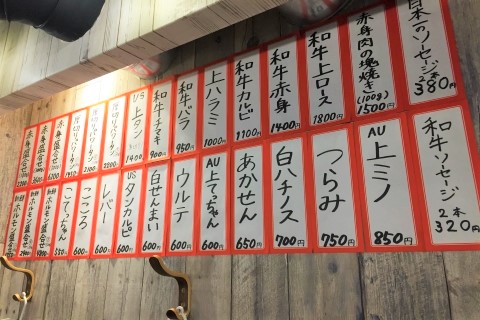 日本一のソーセージ 2本 380円
赤身肉の塊焼き (100g) 1500円
和牛上ロース 1800円
和牛赤身 1400円
和牛カルビ 1100円
上ハラミ 1000円
和牛バラ 950円
和牛チマキ 900円
US 上タン 1400
和牛ソーセージ 2本 320円
AU 上ミノ 850円
つらみ 750円
白ハチノス 700円
あかせん 650円
AU 上てっちゃん 600円
ウルテ 600円
白せんまい 600円
US タンカルビ 600円
レバー 600円
こころ 600
こてっちゃん
ホルモン盛合せ
ホルモン盛合せ